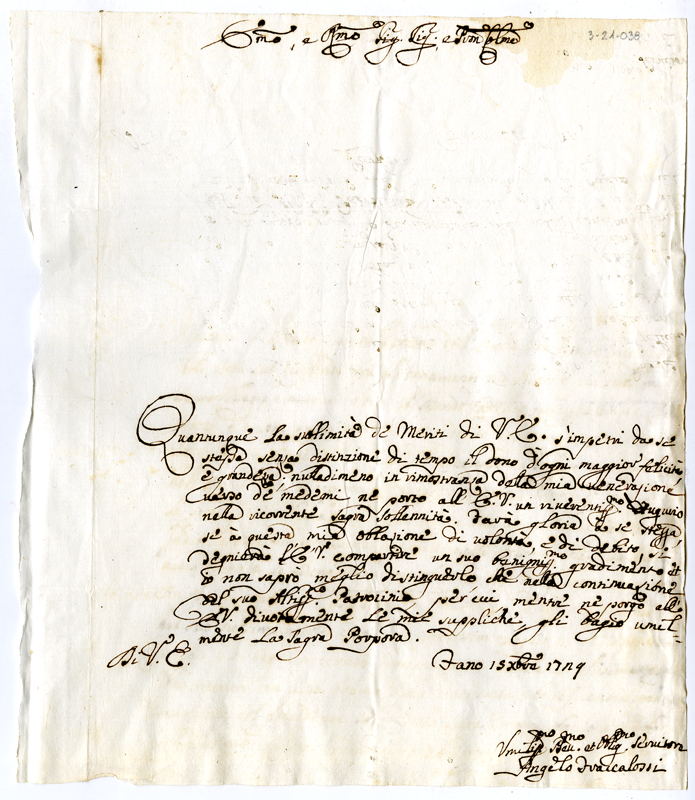 3-21-038
Emo, e Rmo Sig. Sig. e Pron Colmo
Quantunque la sublimità de Meriti di V. E. s'impetri da se
stessa senza distinzione di tempo il dono d'ogni maggior felicità
e grandezza: nulladimeno in rimostranza della mia venerazione
verso de medemi ne porto all' E. V. un riverentissmo Augurio
nella ricorrente sagra sollennità. Darà gloria à se stessa
se à questa mia oblazione di volontà, e di debito, si
degnierà l'E. V. compartire un suo benigniss.mo gradimento et
io non saprò meglio distinguerlo che nella continuazione
del suo Patrocinio, per cui mentre ne porgo all'
E. V. divotamente le mie suppliche gli bagio umil-
mente la Sagra Porpora.
Di V. E.
Fano 15 Xbre 1719
Umiliss.mo Dev.mo et Obig.mo Servitore
Angelo